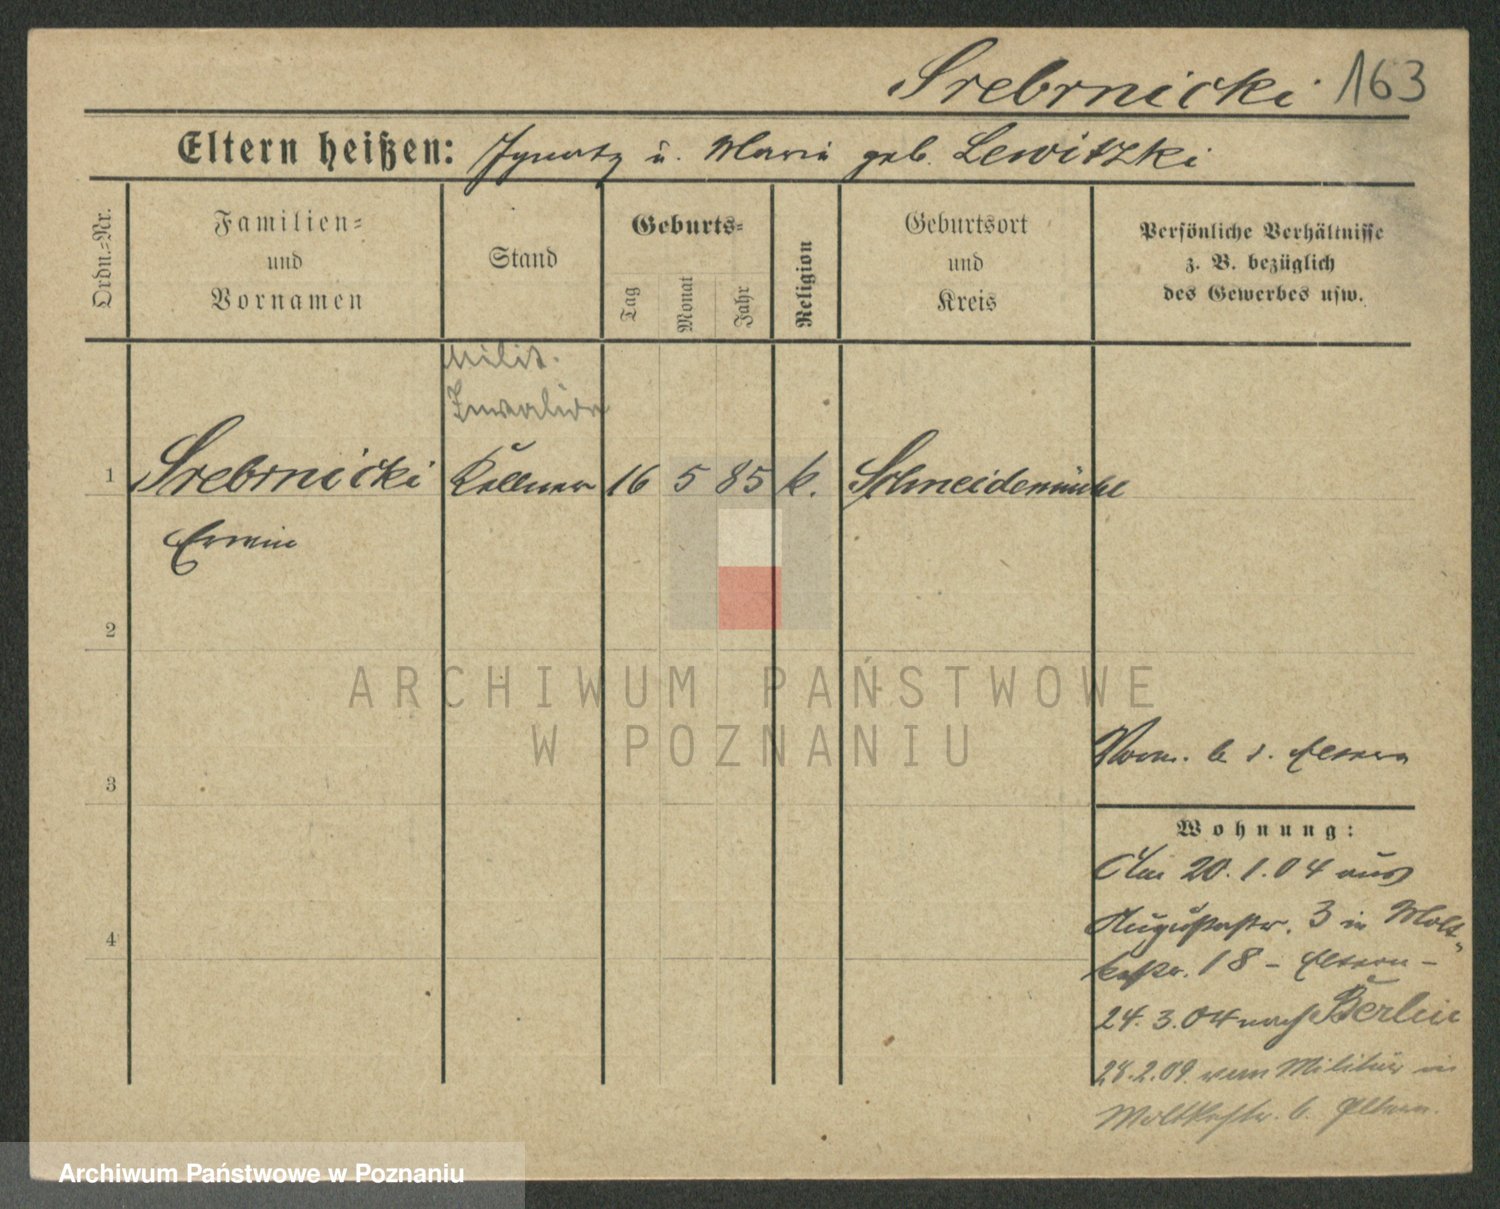 Srebrnicki 163
Eltern heißen: Ignatz u. Maria geb. Lewitzki
Ordn.-Nr.
Familien-
und
Vornamen
Stand
Geburts-
Tag
Monat
Jahr
Religion
Geburtsort
und
Kreis
Persönliche Verhältnisse
z. B. bezüglich
des Gewerbes usw.
Milit.
Invalide
1 Srebrnicki Kellner 16 5 85 k. Schneidemühl
Erwin
2
ARCHIWUM PAŃSTWOWE
W POZNANIU
3
Vorm. b. d. Eltern
Wohnung:
Am 20.1.04 aus
Augustastr. 3 in Molt-
kestr. 18 - Eltern -
24.3.04 nach Berlin
4
28.2.09. vom Militär in
Moltkestr. b. Eltern.
Archiwum Państwowe w Poznaniu